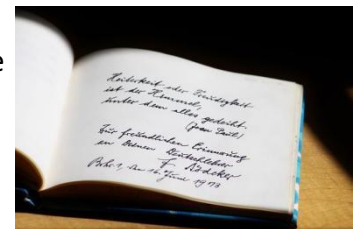 e
Heiterkeit oder Freudigkeit
ist der Himmel,
unter dem alles gedeiht.
(Jean Paul)
Zur freundlichen Erinnerung
an Deinen Deutschlehrer
den 16. Juni 1973